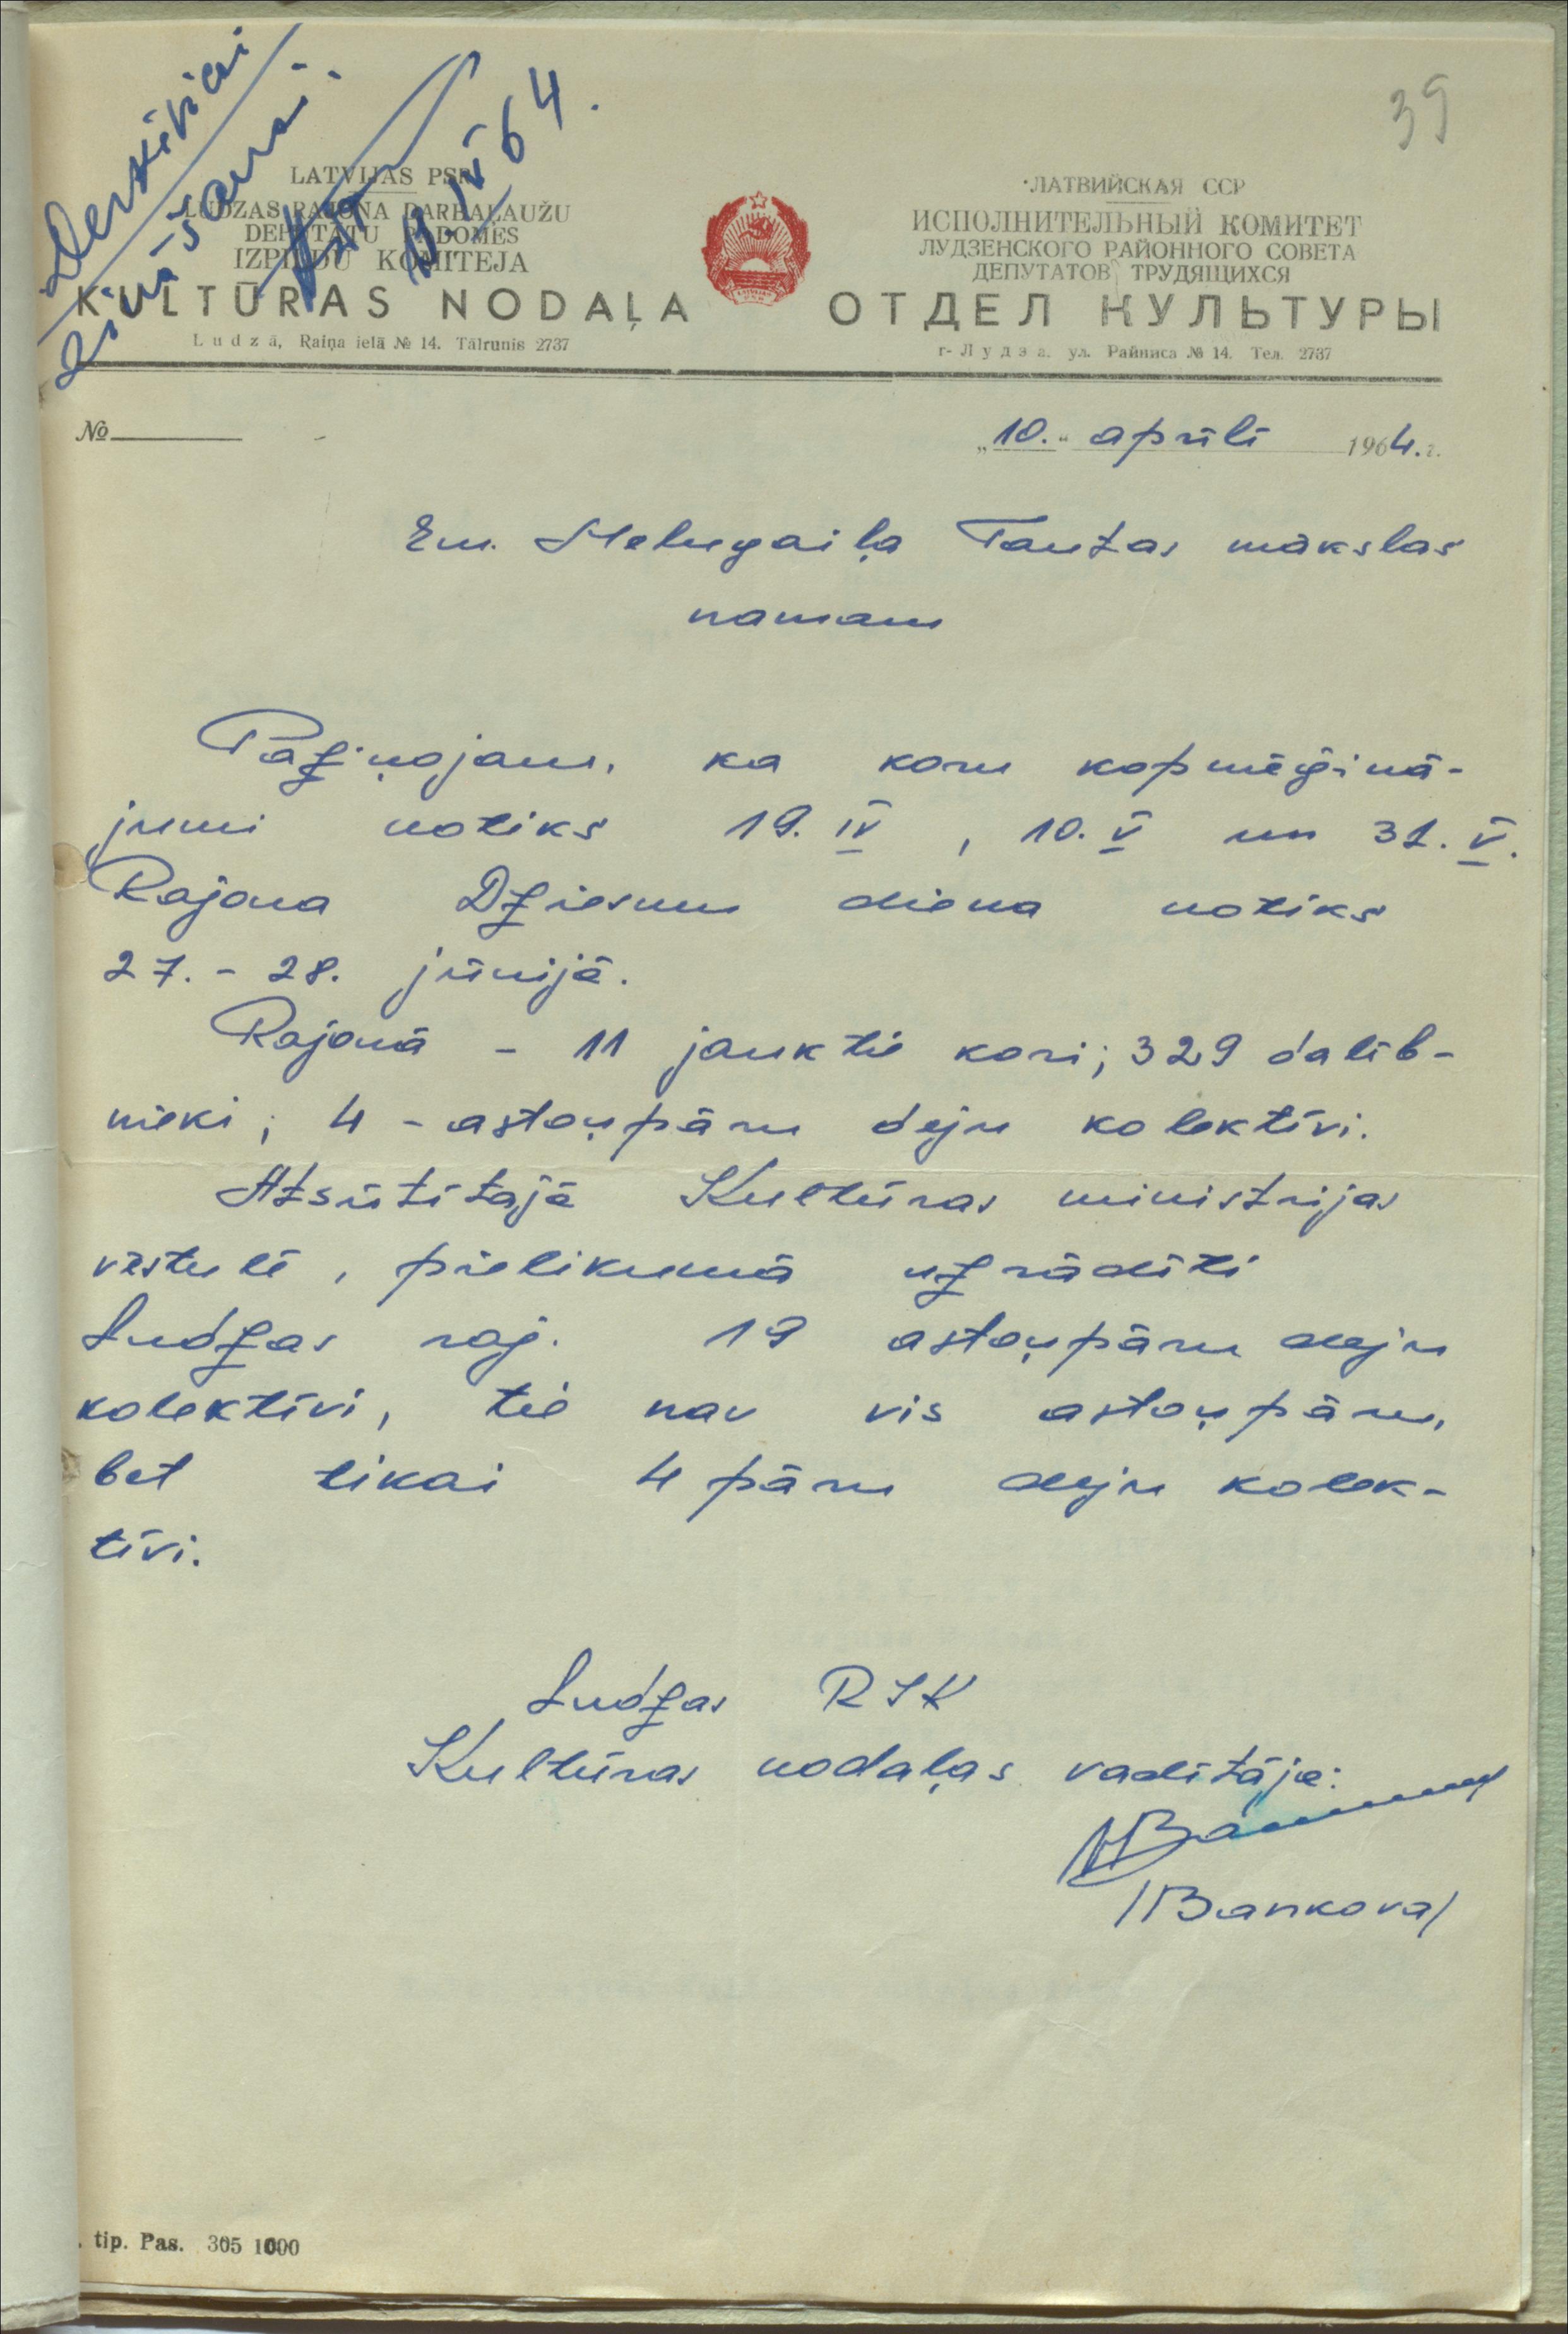 39
zināšanai.
13. IV 64.
LATVIJAS PSR
LUDZAS RAJONA DARBAĻAUŽU
DEPUTĀTU PADOMES
IZPILDU KOMITEJA
KULTŪRAS NODAĻA
Ludzā, Raiņa ielā № 14. Tālrunis 2737
ЛАТВИЙСКАЯ ССР
ИСПОЛНИТЕЛЬНЫЙ КОМИТЕТ
ЛУДЗЕНСКОГО РАЙОННОГО СОВЕТА
ДЕПУТАТОВ ТРУДЯЩИХСЯ
ОТДЕЛ КУЛЬТУРЫ
г. Лудза, ул. Райниса № 14. Тел. 2737
№
„10.“ aprīlī 1964. г.
Em. Melngaiļa Tautas mākslas
namam
Paziņojam, ka koru kopmēģinā-
jumi notiks 19. IV, 10. V un 31. V.
Rajona Dziesmu diena notiks
27.- 28. jūnijā.
Rajonā - 11 jauktie kori; 329 dalīb-
nieki; 4 - astoņpāru deju kolektīvi.
Atsūtītajā Kultūras ministrijas
vēstulē, pielikumā uzrādīti
Ludzas raj. 19 astoņpāru deju
kolektīvi, tie nav vis astoņpāru,
bet tikai 4 pāru deju kolek-
tīvi.
Ludzas RIK
Kultūras nodaļas vadītāja:
/Bankova/
tip. Pas. 305 1000